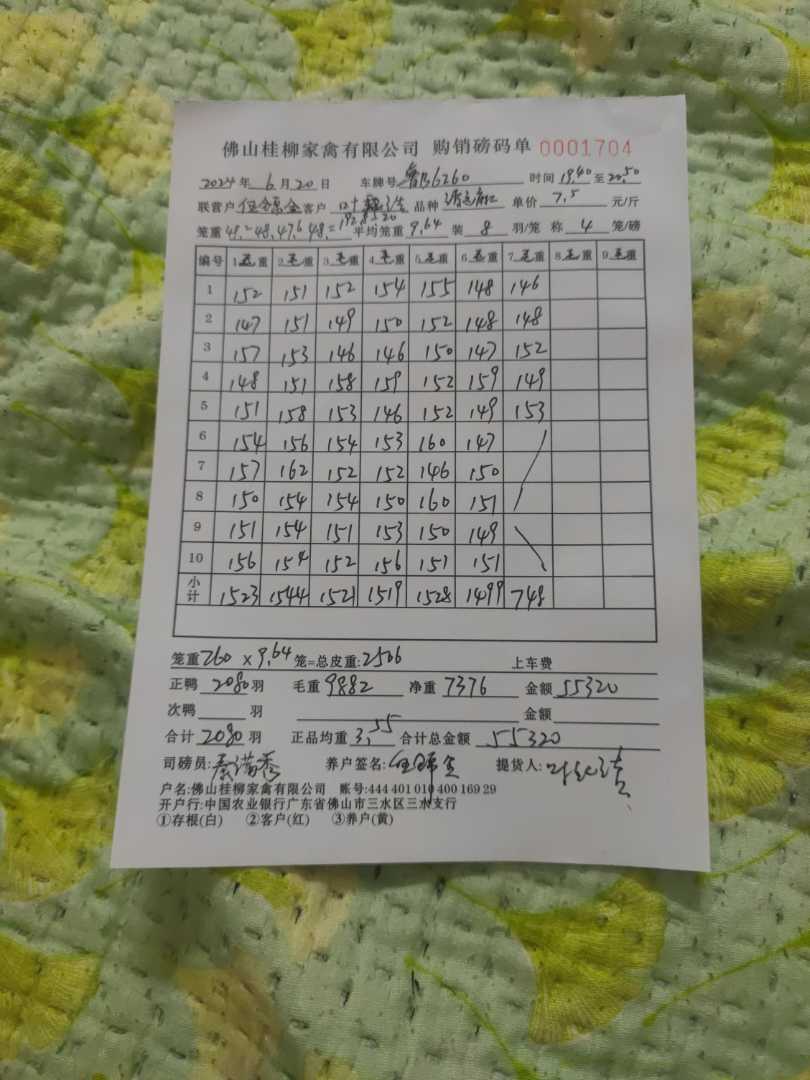 佛山桂柳家禽有限公司 购销磅码单 0001704
2024年 6月20日 车牌号 B6260 时间 19,40 至 20,50
联营户 客户 品种 单价 7.5 元/斤
笼重 平均笼重 9,64 装 8 羽/笼 称 4 笼/磅
编号 1.毛重 2.毛重 3.毛重 4.毛重 5.毛重 6.毛重 7.毛重 8.毛重 9.毛重
1 152 151 152 154 155 148 146
2 147 151 149 150 152 148 148
3 157 153 146 146 150 147 152
4 148 151 158 159 152 159 149
5 151 158 153 146 152 149 153
6 154 156 154 153 160 147
7 157 162 152 152 146 150
8 150 154 154 150 160 151
9 151 154 151 153 150 149
10 156 154 152 156 151 151
小计 1523 1544 1521 1519 1528 1499 748
笼重 260 × 9,64 笼=总皮重:2506 上车费
正鸭 2080 羽 毛重 9882 净重 7376 金额 55320
次鸭 羽 金额
合计 2080 羽 正品均重 3,55 合计总金额 55320
司磅员: 养户签名: 提货人:
户名:佛山桂柳家禽有限公司 账号:444 401 010 400 169 29
开户行:中国农业银行广东省佛山市三水区三水支行
①存根(白) ②客户(红) ③养户(黄)